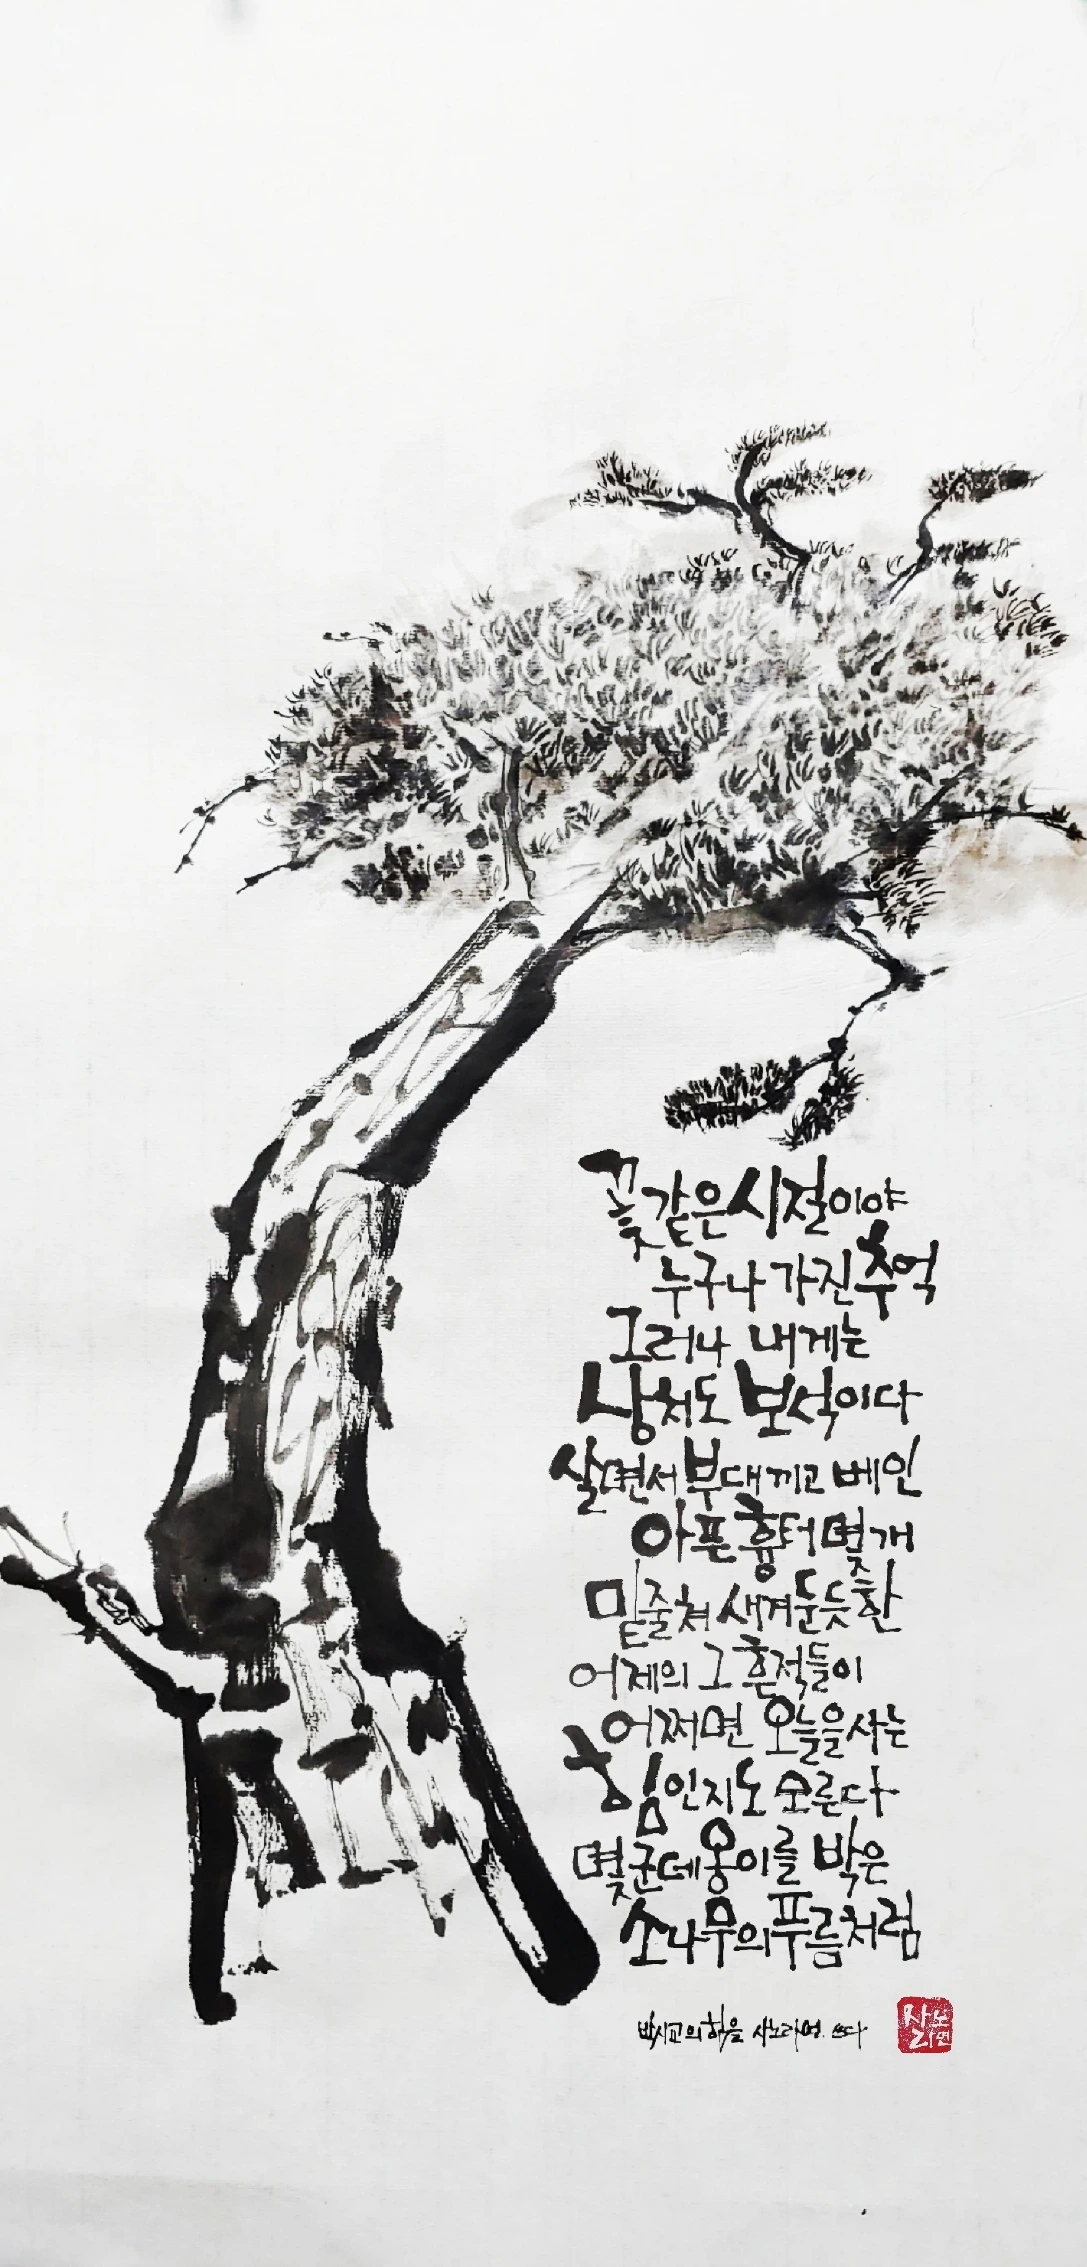 꽃같은 시절이야
누구나 가진 추억
그러나 내게는
상처도 보석이다
살면서 부대끼고 베인
아픈 흉터 몇개
밑줄쳐 새겨둔듯한
어제의 그 흔적들이
어쩌면 오늘을 사는
힘인지도 모른다
몇군데 옹이를 박은
소나무의 푸름처럼
박시교의 힘을 사노라면. 쓰다
사노라면